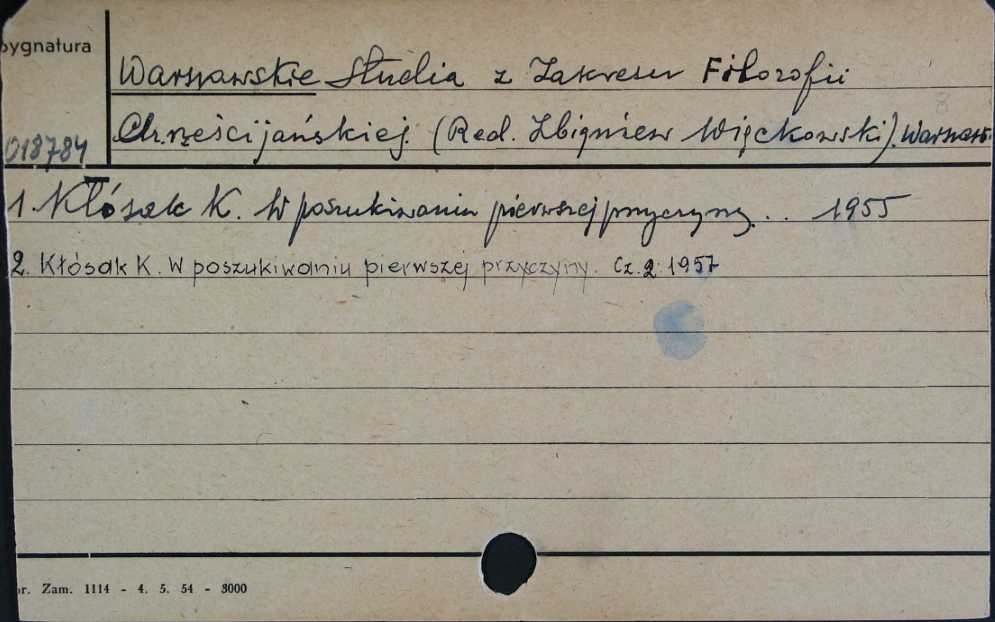 Sygnatura
Warszawskie Studia z Zakresu Filozofii
018784 Chrześcijańskiej. (Red. Zbigniew Więckowski). Warszawa
I
1. Kłósak K. W poszukiwaniu pierwszej przyczyny... 1955
2. Kłósak K. W poszukiwaniu pierwszej przyczyny. Cz. 2 1957
nr. Zam. 1114 - 4. 5. 54 - 3000